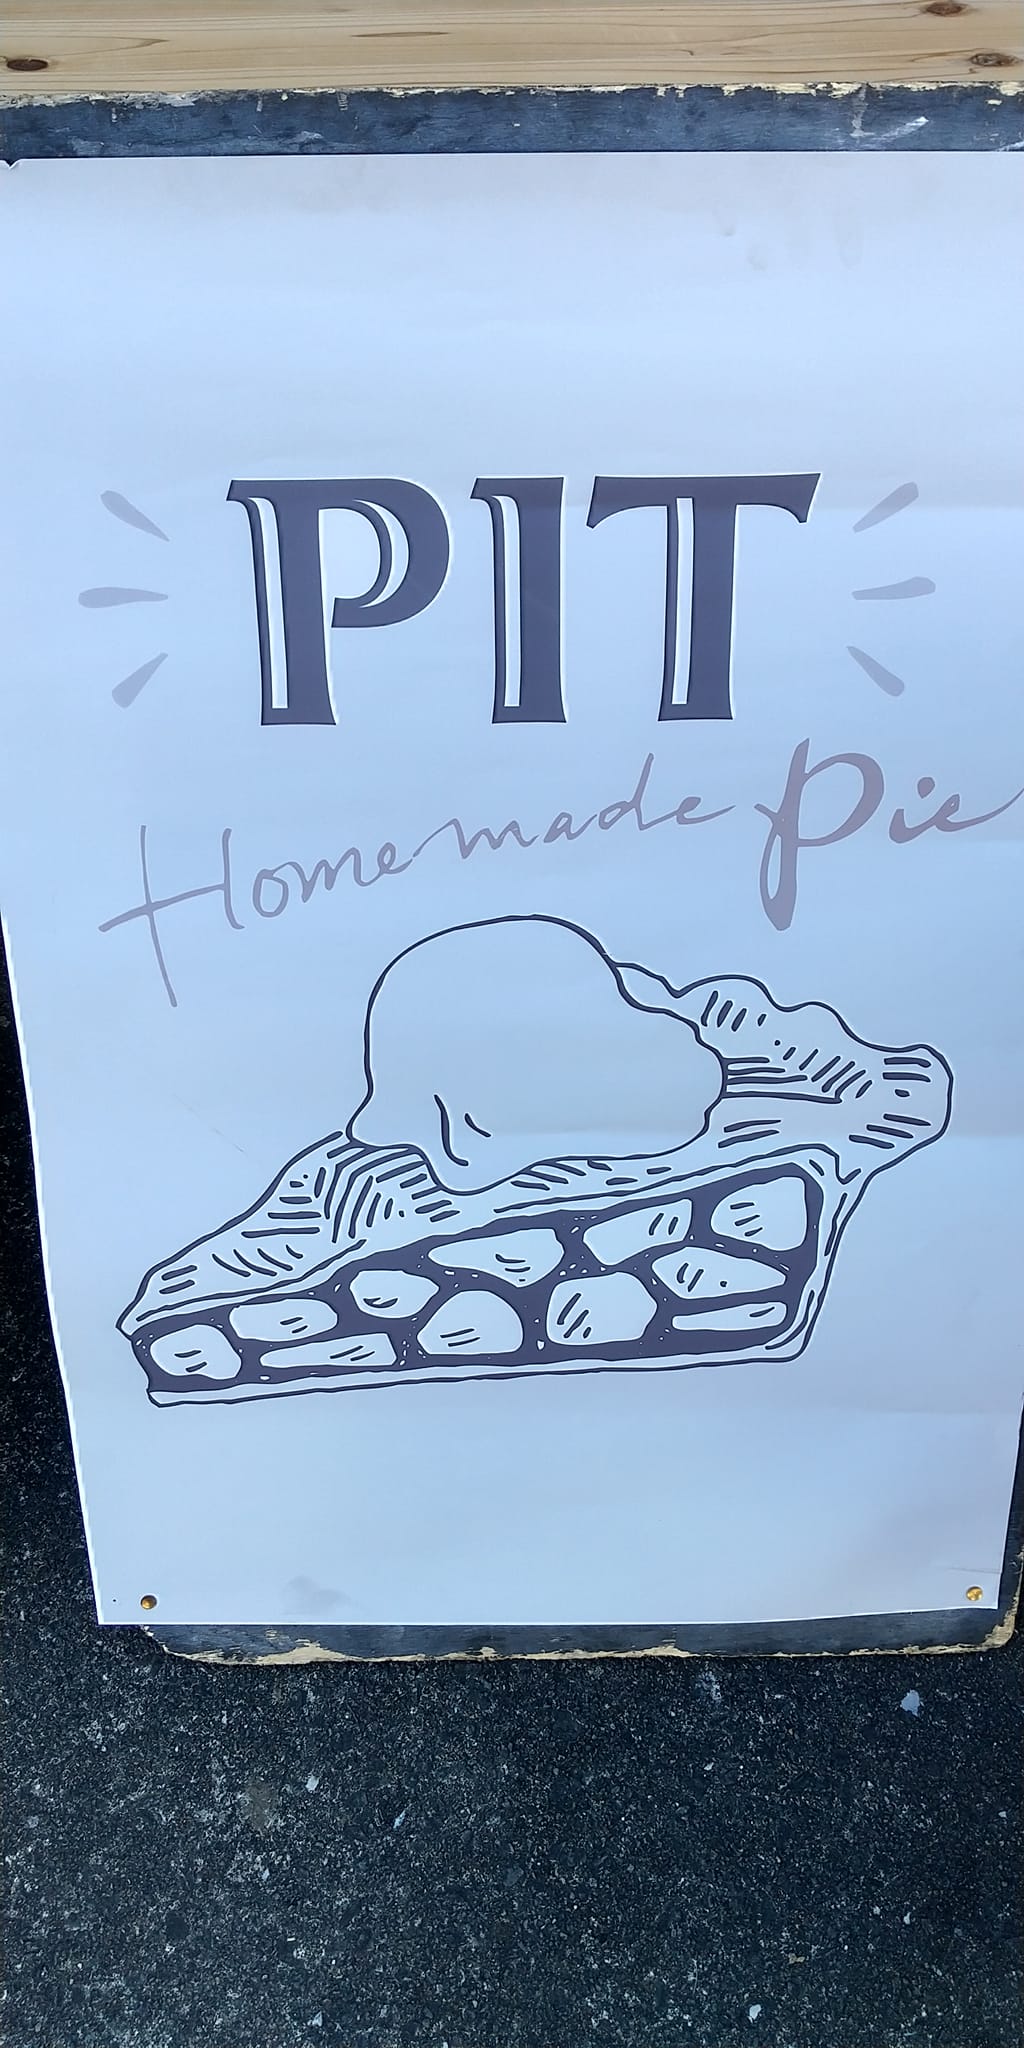 PIT
Homemade Pie